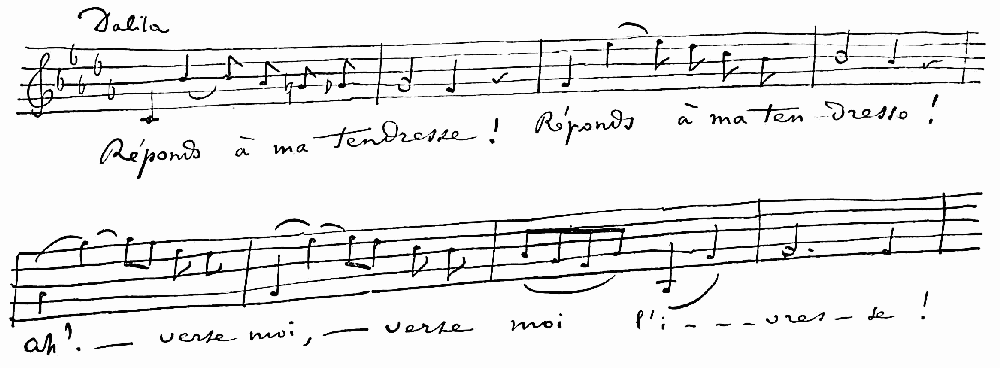 Dalila
Réponds à ma tendresse! Réponds à ma ten-dresse!
ah! — verse moi, — verse moi l'i - - - vres - se !